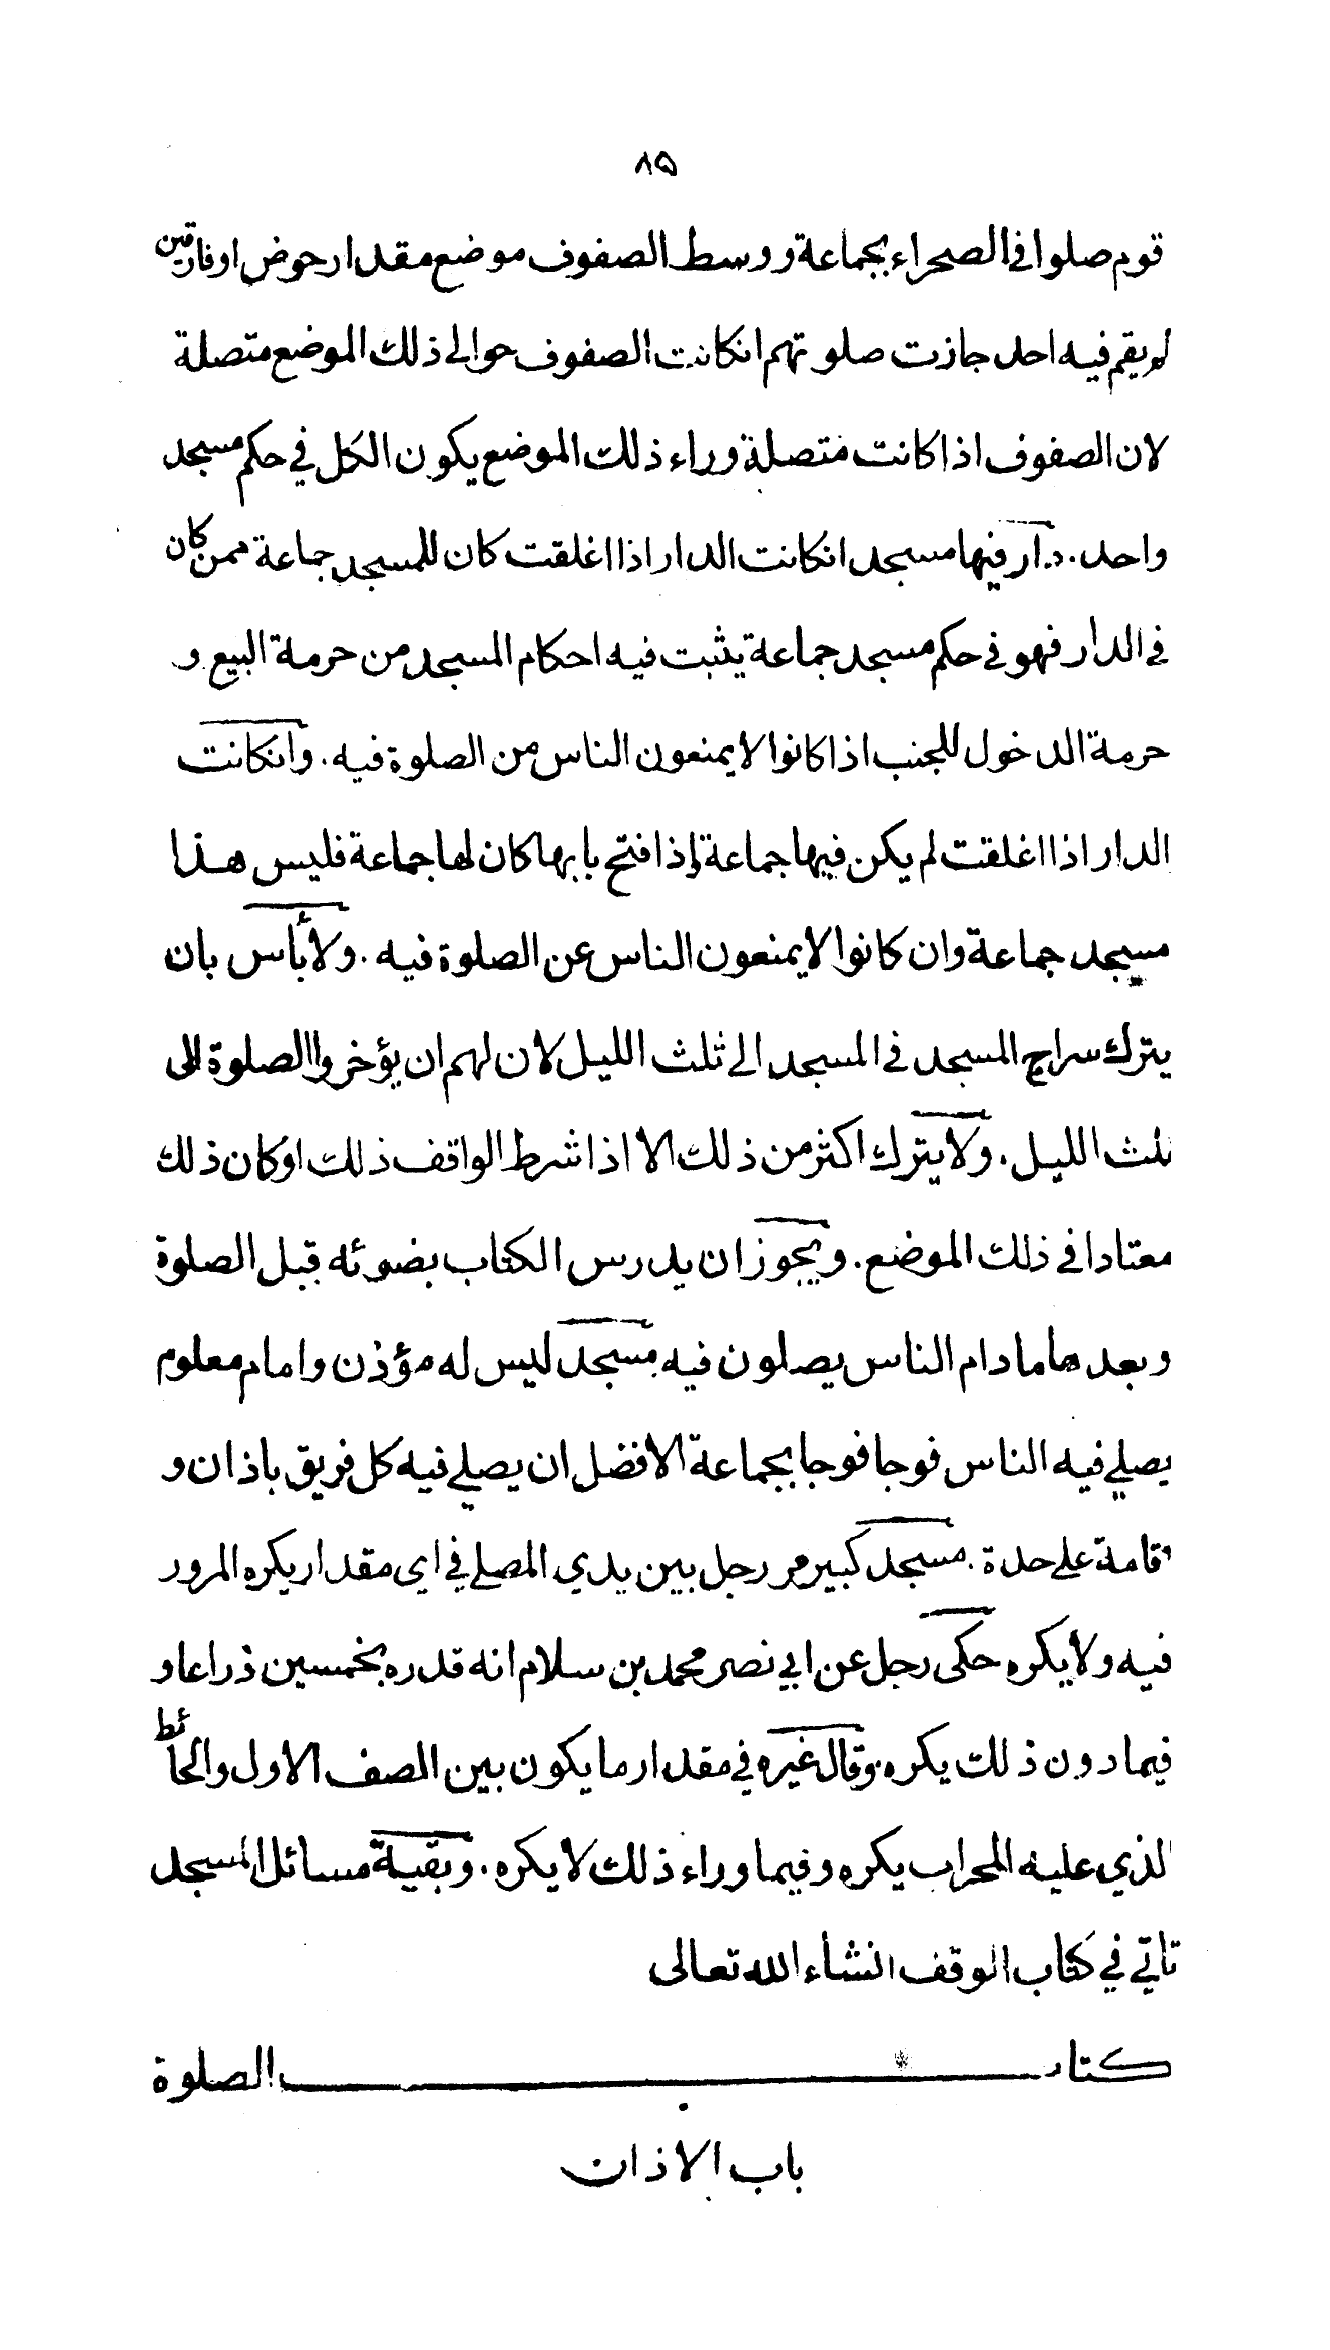 ۸۵
قوم صلوا في الصحراء بجماعة ووسط الصفوف موضع مقدار حوض او فارقين
لم يقم فيه احد جازت صلوتهم انكانت الصفوف حوالى ذلك الموضع متصلة
لان الصفوف اذا كانت متصلة وراء ذلك الموضع يكون الكل في حكم مسجد
واحد. دار فيها مسجد انكانت الدار اذا اغلقت كان للمسجد جماعة ممن كان
في الدار فهو في حكم مسجد جماعة يثبت فيه احكام المسجد من حرمة البيع و
حرمة الدخول للجنب اذا كانوا لا يمنعون الناس من الصلوة فيه. وانكانت
الدار اذا اغلقت لم يكن فيها جماعة واذا فتح بابها كان لها جماعة فليس هذا
مسجد جماعة وان كانوا لا يمنعون الناس عن الصلوة فيه. ولا بأس بان
يترك سراج المسجد في المسجد الى ثلث الليل لان لهم ان يؤخروا الصلوة الى
ثلث الليل. ولا يترك اكثر من ذلك الا اذا شرط الواقف ذلك او كان ذلك
معتادا في ذلك الموضع. ويجوز ان يدرس الكتاب بضوئه قبل الصلوة
وبعدها مادام الناس يصلون فيه. مسجد ليس له مؤذن وامام معلوم
يصلي فيه الناس فوجا فوجا بجماعة الافضل ان يصلي فيه كل فريق باذان و
اقامة على حدة. مسجد كبير مر رجل بين يدي المصلي في اي مقدار يكره المرور
فيه ولا يكره حكى رجل عن ابي نصر محمد بن سلام انه قدره بخمسين ذراعا و
فيما دون ذلك يكره. وقال غيره في مقدار ما يكون بين الصف الاول والحائط
الذي عليه المحراب يكره وفيما وراء ذلك لا يكره. وبقية مسائل المسجد
تاتي في كتاب الوقف انشاء الله تعالى
كتاب الصلوة
باب الاذان